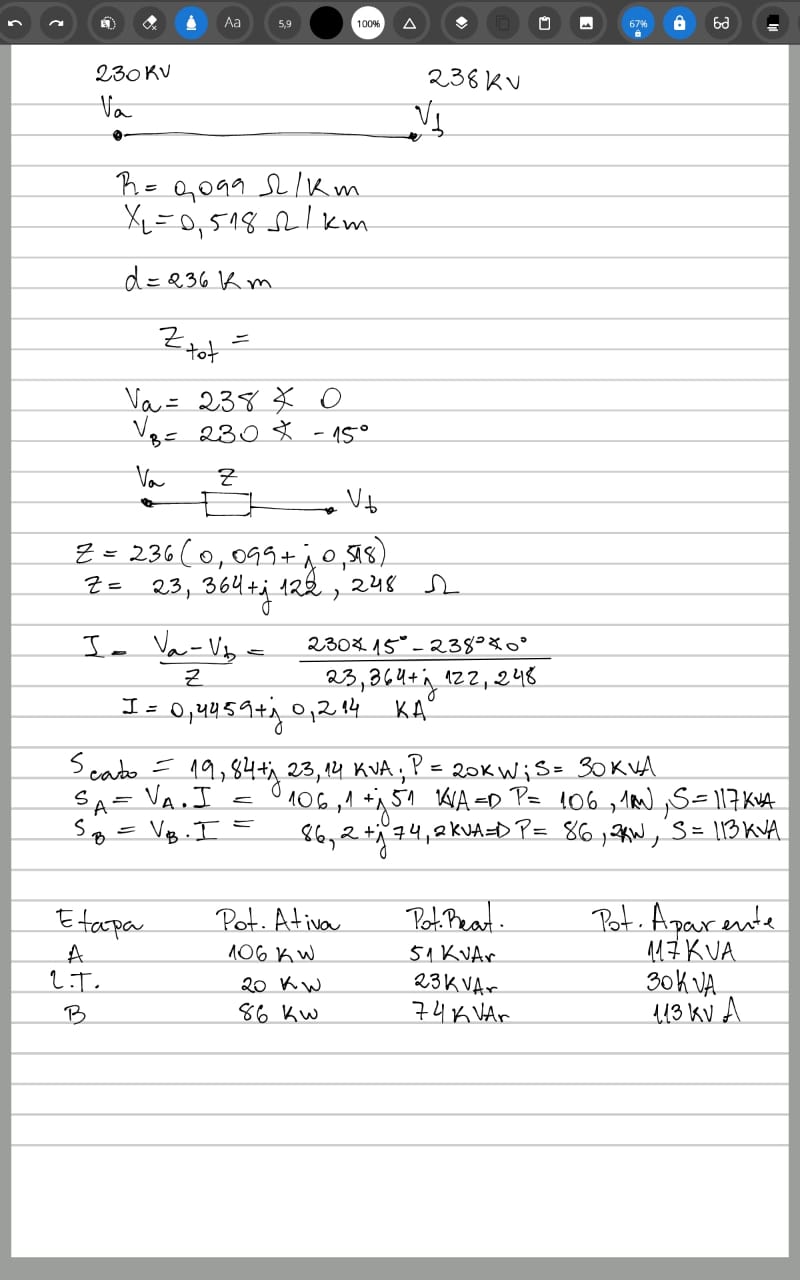 Aa 5,9 100% 67%
230KV 238KV
Va Vb
R= 0,099 Ω/Km
XL=0,518 Ω/km
d=236 Km
Ztot =
Va= 238 ∡ 0
VB= 230 ∡ -15°
Va Z Vb
Z = 236(0,099+j0,518)
Z= 23,364+j122,248 Ω
I = Va-Vb / Z = 230∡15°-238°∡0° / 23,364+j122,248
I = 0,4459+j0,214 KA
Scabo = 19,84+j23,14 KVA; P= 20KW; S= 30KVA
SA= VA.I = 106,1+j51 KVA=D P= 106,1KW, S=117KVA
SB = VB.I = 86,2+j74,2KVA=D P= 86,2KW, S=113KVA
Etapa Pot. Ativa Pot.Reat. Pot. Aparente
A 106 KW 51 KVAr 117KVA
L.T. 20 KW 23KVAr 30KVA
B 86 KW 74KVAr 113KVA